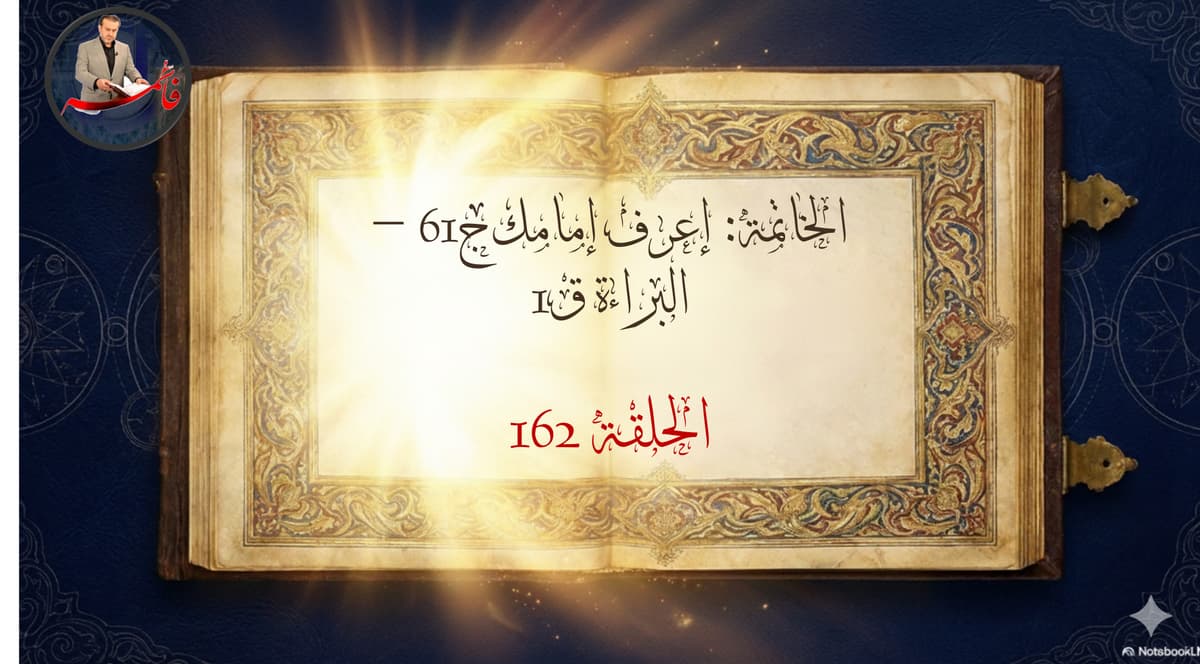 فاطمة
الخاتمة: إعرف إمامك ج61 –
البراءة ق1
الحلقة 162
NotsbookL